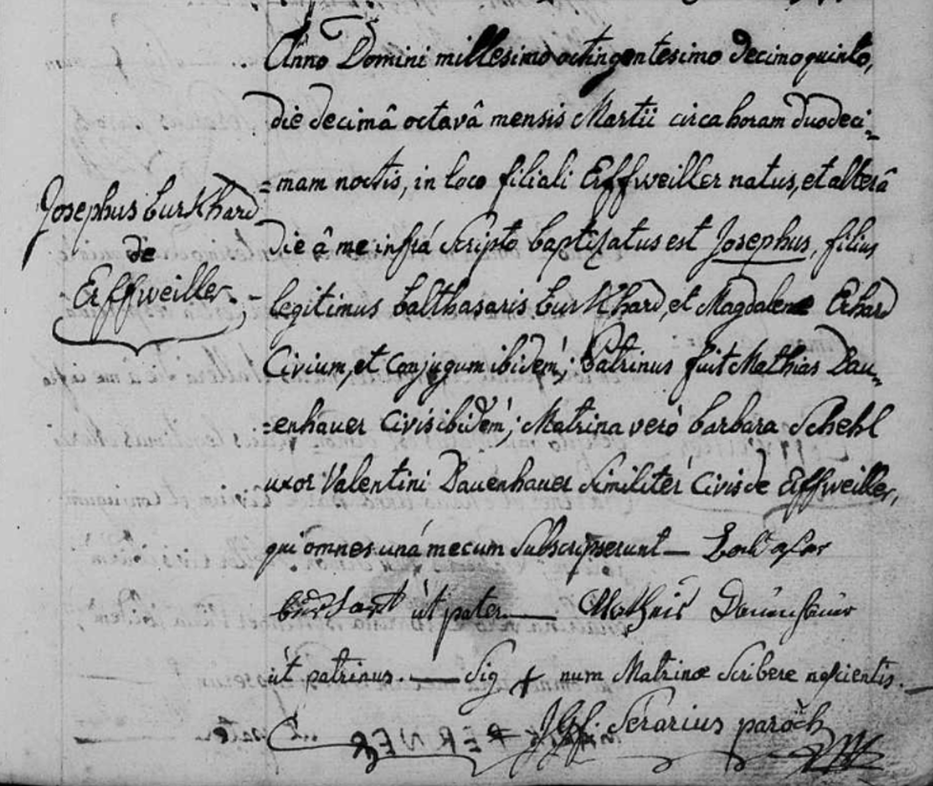 Josephus Burkhard
de
Erffweiller.
Anno Domini millesimo octingentesimo decimo quinto,
die decimâ octavâ mensis Martii circa horam duodeci=
=mam noctis, in loco filiali Erffweiller natus, et alterâ
die â me infrá Scripto baptizatus est Josephus, filius
legitimus balthasaris burkhard, et Magdalenæ Erhard
Civium, et Conjugum ibidem; Patrinus fuit Mathias Dau=
=enhauer Civis ibidem; Matrina veró barbara Schehl
uxor Valentini Dauenhauer Similiter Civis de Erffweiller,
qui omnes uná mecum Subscripserunt —
ut pater — Matheis Dauenhauer
ut patrinus. — Sig + num Matrinæ Scribere nescientis. —
Serarius paroch